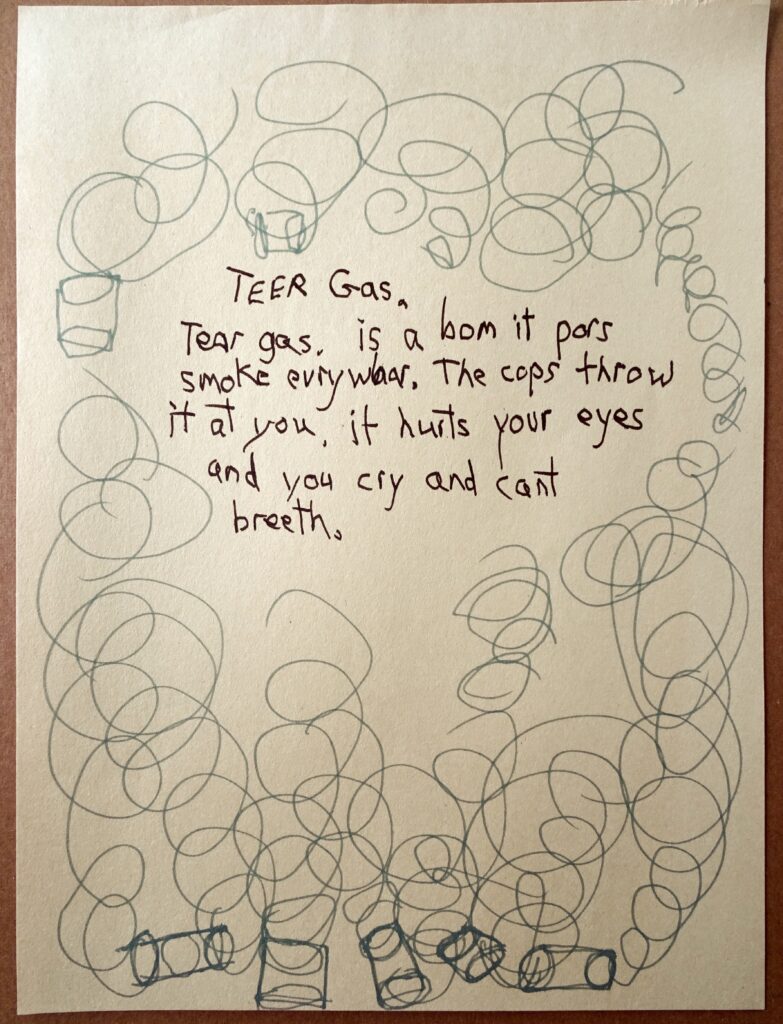 TEER Gas.
Tear gas. is a bom it pors
smoke evrywhar. The cops throw
it at you. it hurts your eyes
and you cry and cant
breeth.